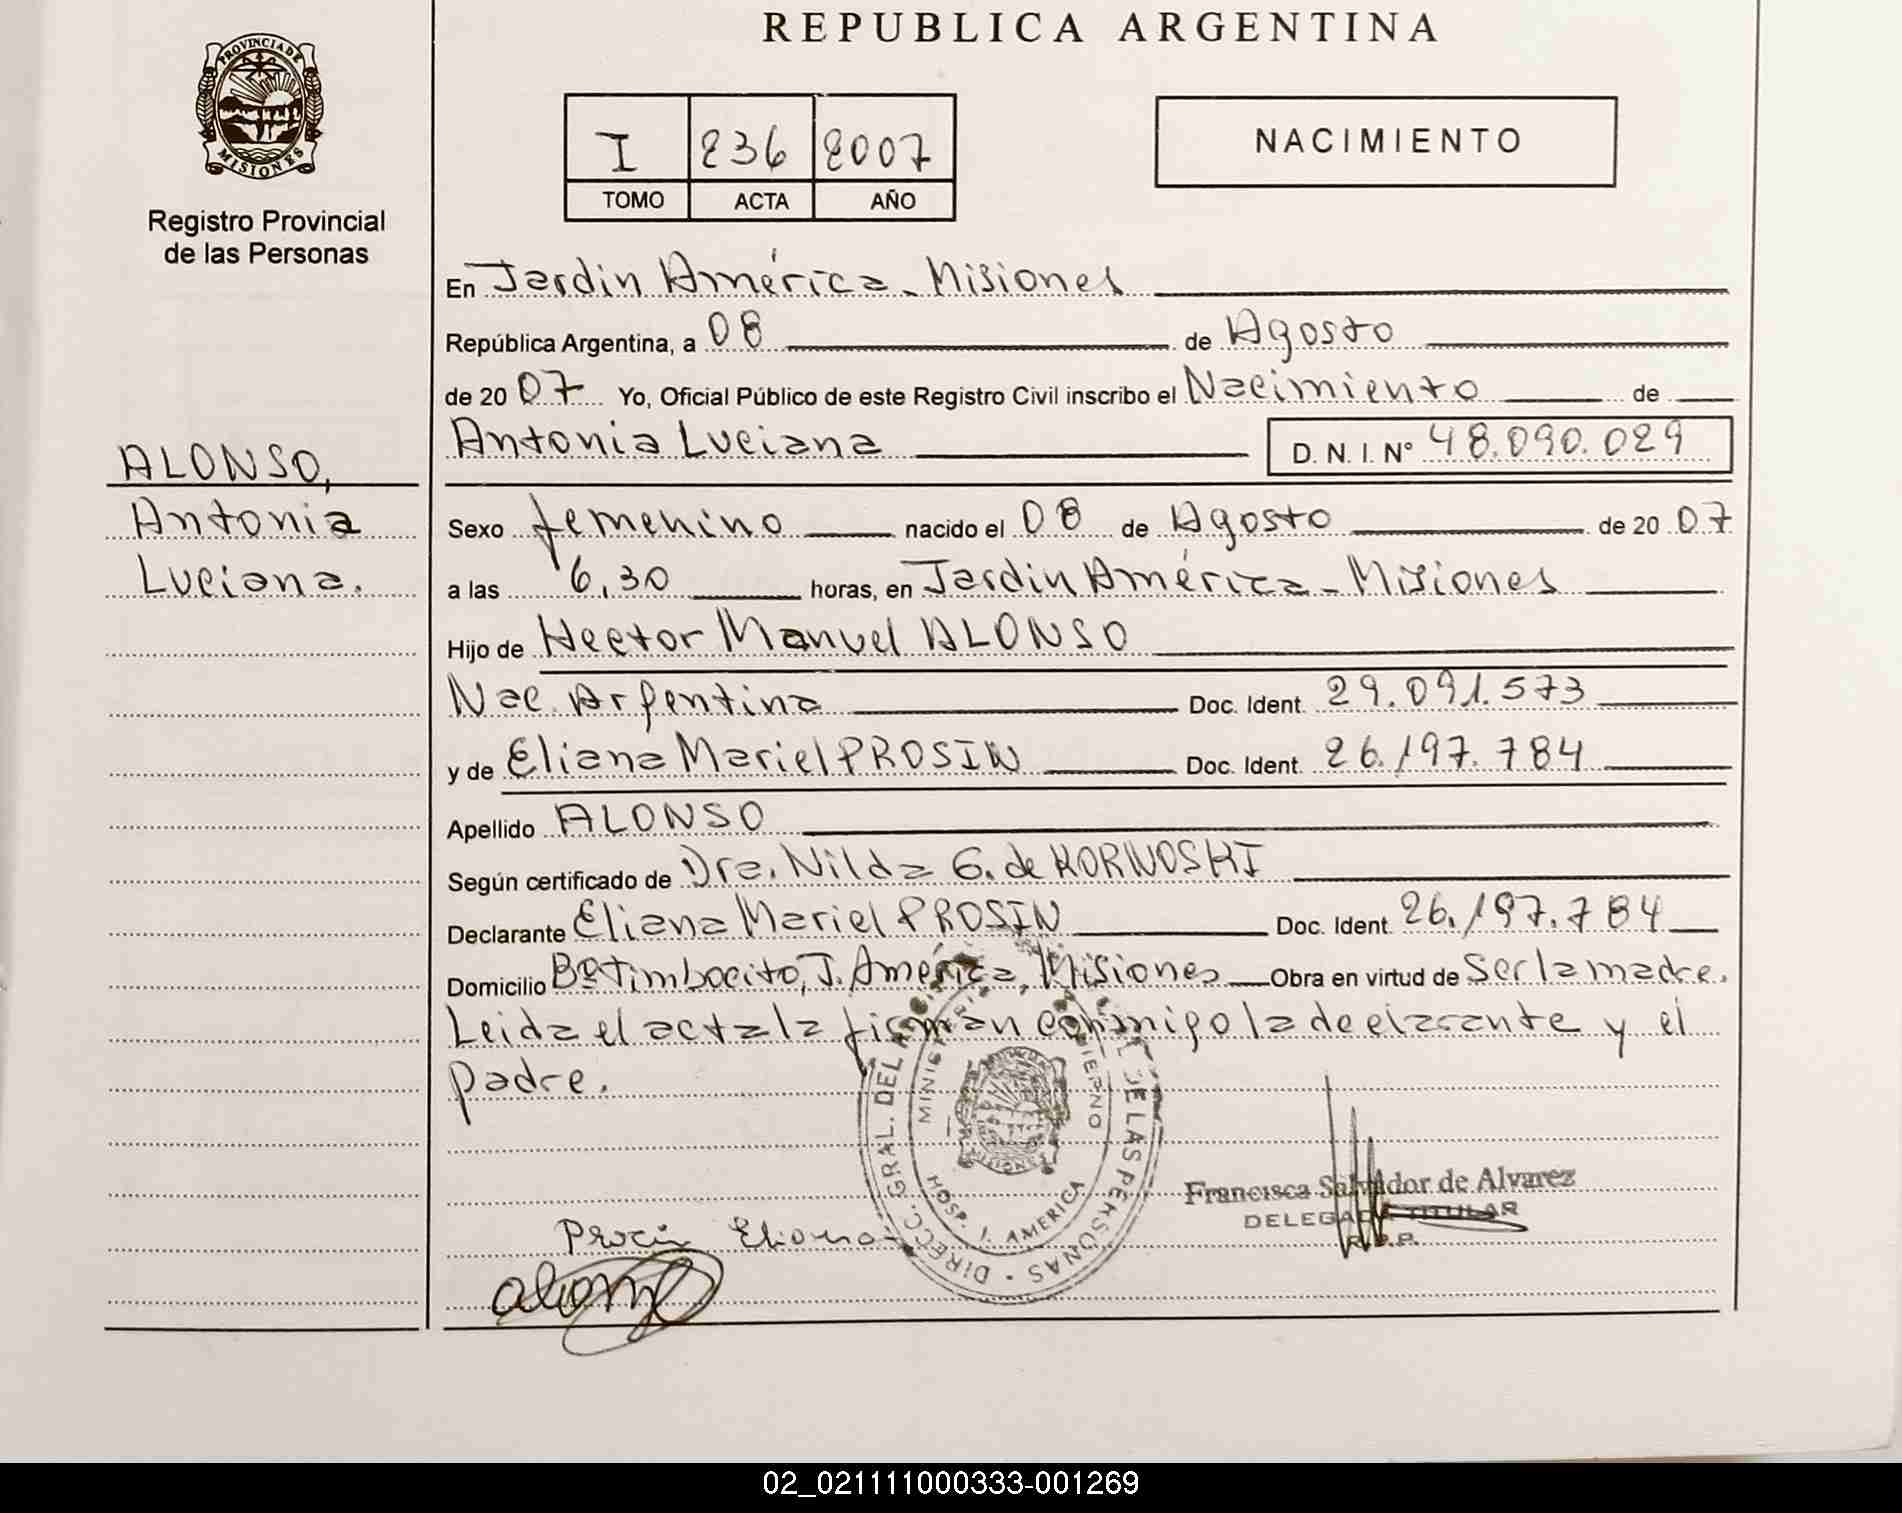 REPUBLICA ARGENTINA
PROVINCIA DE
MISIONES
Registro Provincial
de las Personas
I 236 2007
TOMO ACTA AÑO
NACIMIENTO
En Jardin América - Misiones
República Argentina, a 08 de Agosto
de 20 07 Yo, Oficial Público de este Registro Civil inscribo el Nacimiento de
Antonia Luciana D. N. I. Nº 48.090.029
ALONSO,
Antonia
Luciana.
Sexo femenino nacido el 08 de Agosto de 20 07
a las 6,30 horas, en Jardin América - Misiones
Hijo de Hector Manuel ALONSO
Nac. Argentina Doc. Ident. 29.091.573
y de Eliana Mariel PROSIN Doc. Ident. 26.197.784
Apellido ALONSO
Según certificado de Dra. Nilda G. de KORNOSKI
Declarante Eliana Mariel PROSIN Doc. Ident. 26.197.784
Domicilio Bº Timbocito, J. América, Misiones Obra en virtud de Ser la madre.
Leida el acta la firman conmigo la declarante y el
padre.
DIRECC. GRAL. DEL DE LAS PERSONAS
HOSP. J. AMERICA
Francisca Salvador de Alvarez
DELEGADA TITULAR
R.P.P.
Eliana
02_021111000333-001269